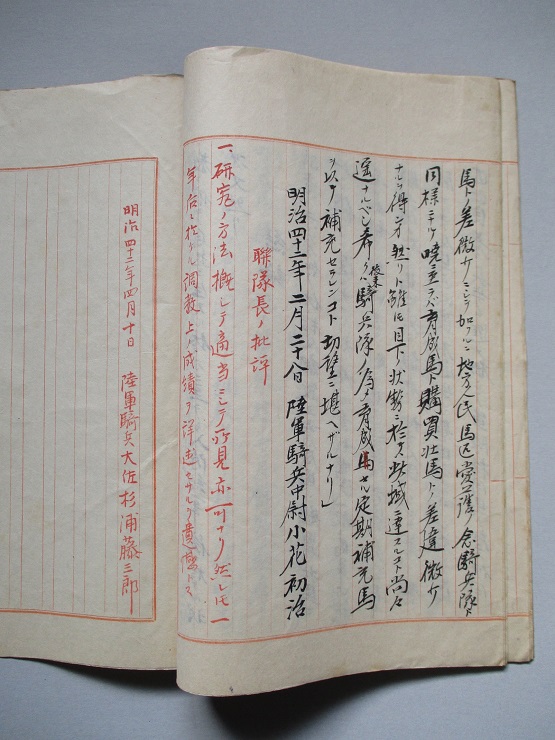 馬トノ差微少ニシテ加フルニ地方人民馬匹愛護ノ念騎兵隊ト
同様ニナルノ暁ニ至ラバ育成馬ト購買壮馬トノ差違微少
ナルヲ得ン然リト雖モ目下ノ状勢ニ於テハ此域ニ達スルコト尚々
遥ナルベシ希クハ騎兵隊ノ為メ育成馬ヲ定期補充馬
ヲ以テ補充セラレンコト切望ニ堪ヘザルナリ」
明治四十二年二月二十八日 陸軍騎兵中尉小花初治
聯隊長ノ批評
一、研究ノ方法概シテ適当ニシテ所見亦可ナリ然レ共一
年台ニ於ケル調教上ノ成績ヲ詳述セザルヲ遺憾トス
明治四十二年四月十日 陸軍騎兵大佐杉浦藤三郎